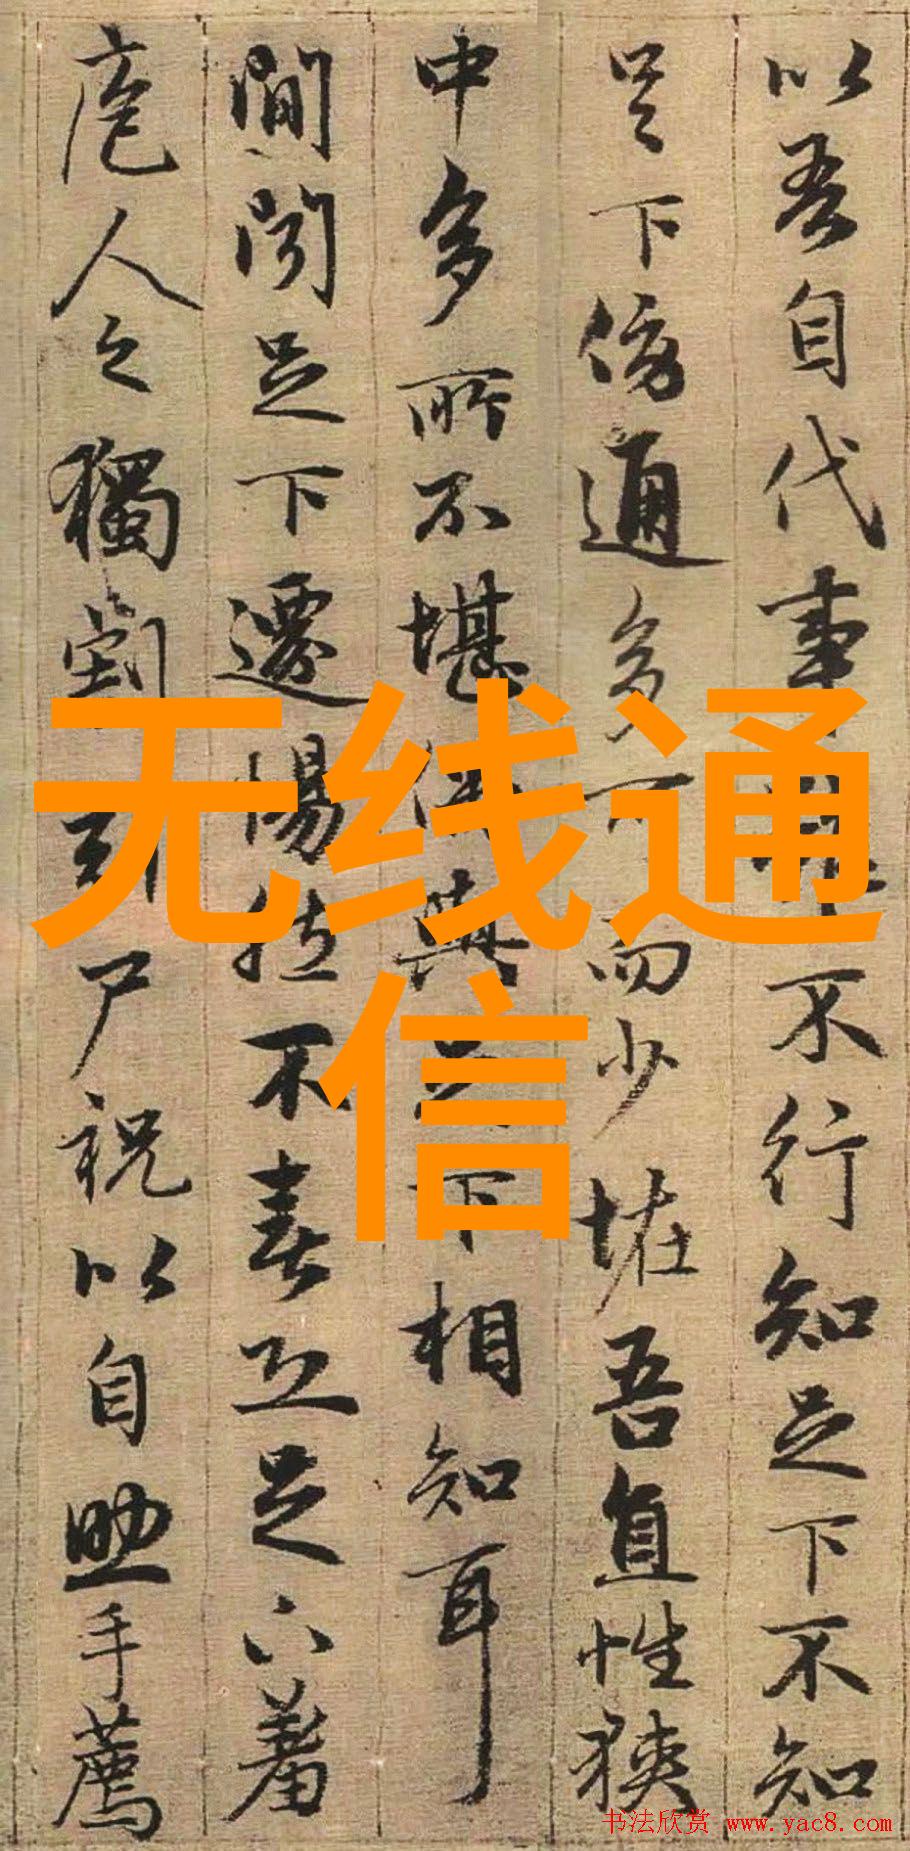 以吾自代事不行知足下不知
足下傍通多可而少恠吾直性狹
中多所不堪與下相知耳
間聞足下遷惕然不喜恐足下羞
庖人之獨割引尸祝以自助手薦
无线通
信
书法欣赏 www.yac8.com